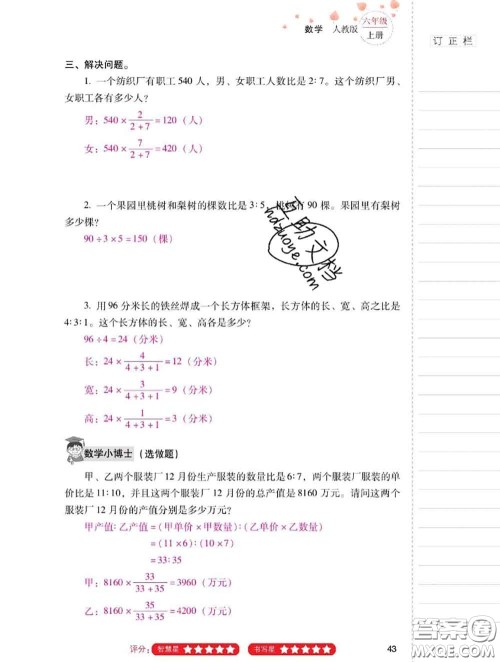 数学 人教版 六年级
上册
订正栏
三、解决问题。
1. 一个纺织厂有职工540人，男、女职工人数比是2∶7。这个纺织厂男、
女职工各有多少人？
男：540×2/(2+7)=120（人）
女：540×7/(2+7)=420（人）
2. 一个果园里桃树和梨树的棵数比是3∶5，桃树有90棵。果园里有梨树
多少棵？
90÷3×5=150（棵）
互助文档
hdzuoye.com
3. 用96分米长的铁丝焊成一个长方体框架，长方体的长、宽、高之比是
4∶3∶1。这个长方体的长、宽、高各是多少？
96÷4=24（分米）
长：24×4/(4+3+1)=12（分米）
宽：24×3/(4+3+1)=9（分米）
高：24×1/(4+3+1)=3（分米）
数学小博士（选做题）
甲、乙两个服装厂12月份生产服装的数量比是6∶7，两个服装厂服装的单
价比是11∶10，并且这两个服装厂12月份的总产值是8160万元。请问这两个
服装厂12月份的产值分别是多少万元？
甲产值∶乙产值=（甲单价×甲数量）∶（乙单价×乙数量）
=（11×6）∶（10×7）
=33∶35
甲：8160×33/(33+35)=3960（万元）
乙：8160×35/(33+35)=4200（万元）
评分： 智慧星 ★★★★★ 书写星 ★★★★★
43
答案圈
MXQE.COM